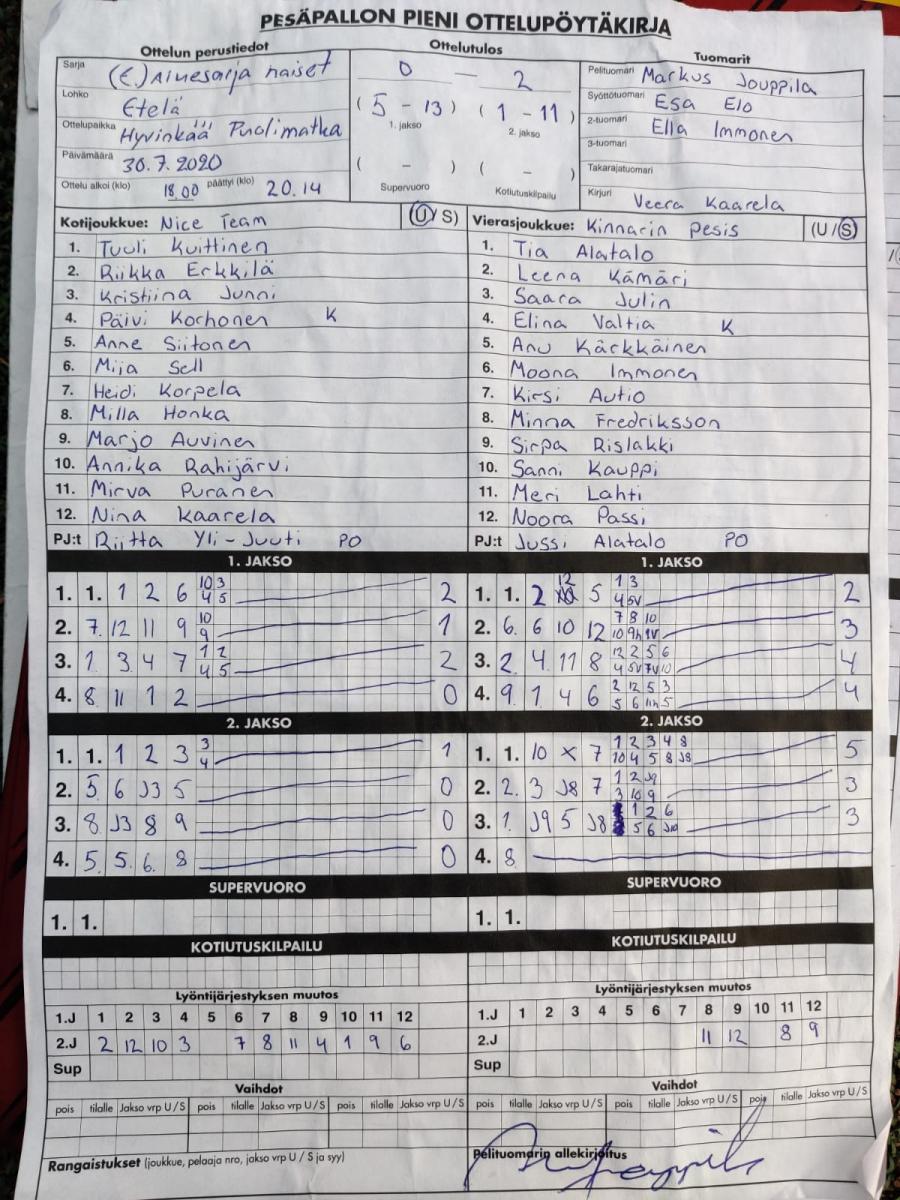 PESÄPALLON PIENI OTTELUPÖYTÄKIRJA
Ottelun perustiedot
Sarja (E) Aluesarja naiset
Lohko Etelä
Ottelupaikka Hyvinkää Puolimatka
Päivämäärä 30.7.2020
Ottelu alkoi (klo) 18.00 päättyi (klo) 20.14
Ottelutulos
0 — 2
( 5 - 13 ) ( 1 - 11 )
1. jakso 2. jakso
( - ) ( - )
Supervuoro Kotiutuskilpailu
Tuomarit
Pelituomari Markus Jouppila
Syöttötuomari Esa Elo
2-tuomari Ella Immonen
3-tuomari
Takarajatuomari
Kirjuri Veera Kaarela
Kotijoukkue: Nice Team (U/S)
1. Tuuli Kuittinen
2. Riikka Erkkilä
3. Kristiina Junni
4. Päivi Korhonen K
5. Anne Siitonen
6. Mija Sell
7. Heidi Korpela
8. Milla Honka
9. Marjo Auvinen
10. Annika Rahijärvi
11. Mirva Puranen
12. Nina Kaarela
PJ:t Riitta Yli-Juuti PO
Vierasjoukkue: Kinnarin Pesis (U/S)
1. Tia Alatalo
2. Leena Kämäri
3. Saara Julin
4. Elina Valtia K
5. Anu Kärkkäinen
6. Moona Immonen
7. Kirsi Autio
8. Minna Fredriksson
9. Sirpa Rislakki
10. Sanni Kauppi
11. Meri Lahti
12. Noora Passi
PJ:t Jussi Alatalo PO
1. JAKSO
1. 1. 1 2 6 10 3 2
4 5
2. 7. 12 11 9 10 1
9
3. 1. 3 4 7 1 2 2
4 5
4. 8 11 1 2 0
2. JAKSO
1. 1. 1 2 3 3 1
4
2. 5. 6 J3 5 0
3. 8. J3 8 9 0
4. 5. 5. 6. 8 0
SUPERVUORO
1. 1.
KOTIUTUSKILPAILU
Lyöntijärjestyksen muutos
1.J 1 2 3 4 5 6 7 8 9 10 11 12
2.J 2 12 10 3 7 8 11 4 1 9 6
Sup
Vaihdot
pois tilalle Jakso vrp U/S pois tilalle Jakso vrp U/S pois tilalle Jakso vrp U/S
Rangaistukset (joukkue, pelaaja nro, jakso vrp U/S ja syy)
1. JAKSO
1. 1. 2 12 5 1 3 2
4 5V
2. 6. 6 10 12 7 8 10 3
10 9h 1V
3. 2. 4 11 8 12 2 5 6 4
4 5V 7V 10
4. 9. 1 4 6 2 12 5 3 4
5 6 11h 5
2. JAKSO
1. 1. 10 x 7 1 2 3 4 8 5
10 4 5 8 J8
2. 2. 3 J8 7 1 2 J9 3
3 10 9
3. 1. J9 5 J8 1 2 6 3
5 6 J10
4. 8
SUPERVUORO
1. 1.
KOTIUTUSKILPAILU
Lyöntijärjestyksen muutos
1.J 1 2 3 4 5 6 7 8 9 10 11 12
2.J 11 12 8 9
Sup
Vaihdot
pois tilalle Jakso vrp U/S pois tilalle Jakso vrp U/S pois tilalle Jakso vrp U/S
Pelituomarin allekirjoitus